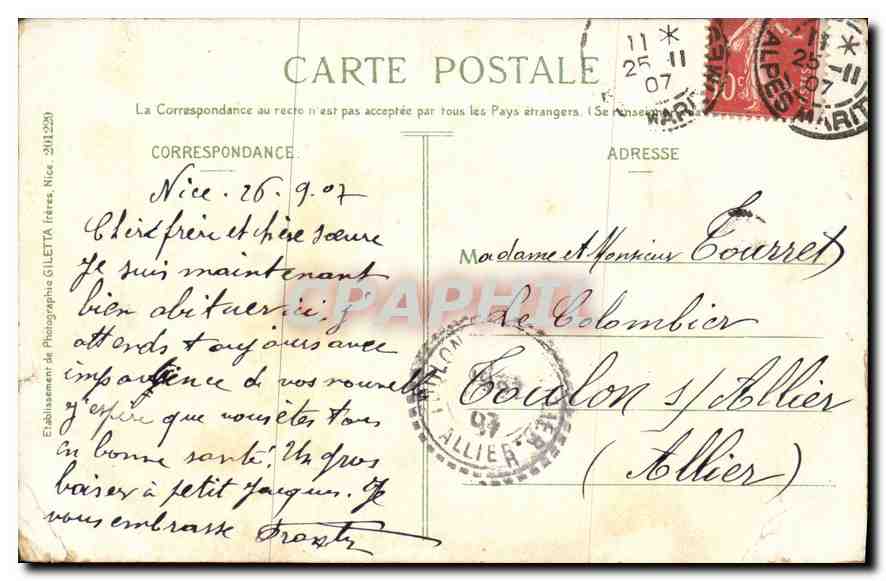 CARTE POSTALE
La Correspondance au recto n'est pas acceptée par tous les Pays étrangers. (Se renseigner
CORRESPONDANCE
Nice. 26. 9. 07
Cher frère et chère sœure
Je suis maintenant
bien abituer ici, j
attends toujours avec
impatience de vos nouvelles
j'espère que vous êtes tous
en bonne santé. Un gros
baiser à petit Jacques. Je
vous embrasse
ADRESSE
Madame et Monsieur Tourret
Le Colombier
Toulon s/ Allier
(Allier)
Etablissement de Photographie GILETTA frères, Nice. 201229
11 *
25 -11
07
MARIT
50c
11 *
25 -11
07
ALPES MARIT
TOULON
07
ALLIER
CPAPHIL